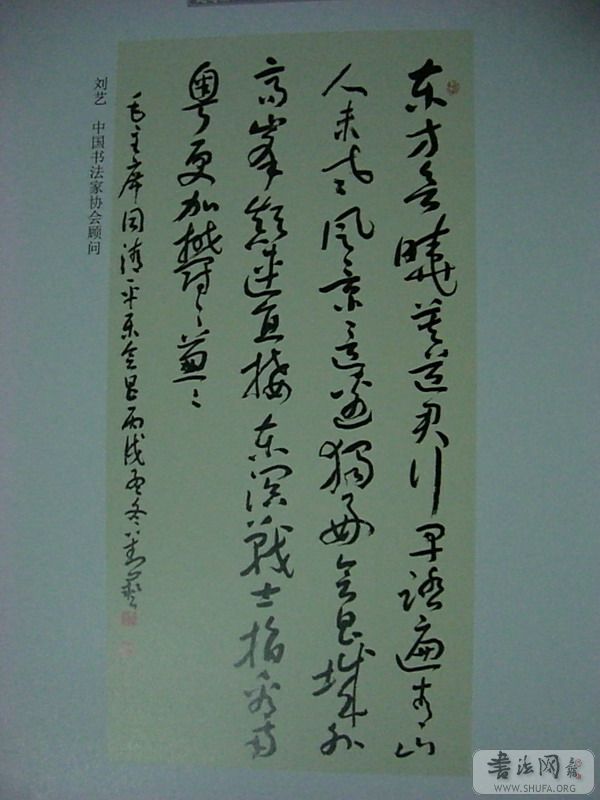 东方欲曉莫道君行早踏遍青山
人未老风景這邊獨好会昌城外
高峯顛連直接东溟戰士指看南
粤更加鬱〻葱〻
毛主席词清平乐会昌丙戌孟冬刘藝
刘艺 中国书法家协会顾问
书法网
WWW.SHUFA.ORG